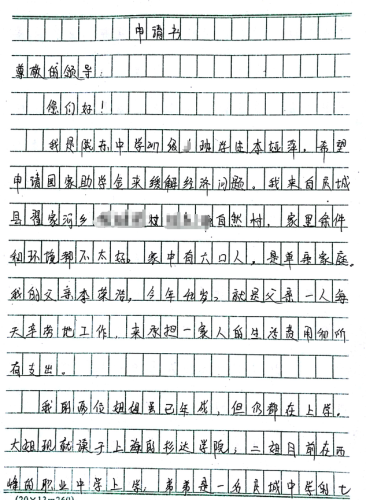 申请书
尊敬的领导：
您们好！
我是城东中学217级 班学生李娅萍，希望
申请国家助学金来缓解经济问题。我来自民城
县翟家河乡 村 自然村，家里条件
和环境都不太好。家中有六口人，是单亲家庭。
我的父亲李荣浩，今年 岁，就是父亲一人每
天辛劳地工作，来承担一家人的生活费用和所
有支出。
我的两位姐姐虽已年成，但仍都在上学。
大姐现就读于上海的杉达学院；二姐目前在西
峰的职业中学上学；弟弟是一名 城中学的七
(20×13=260)